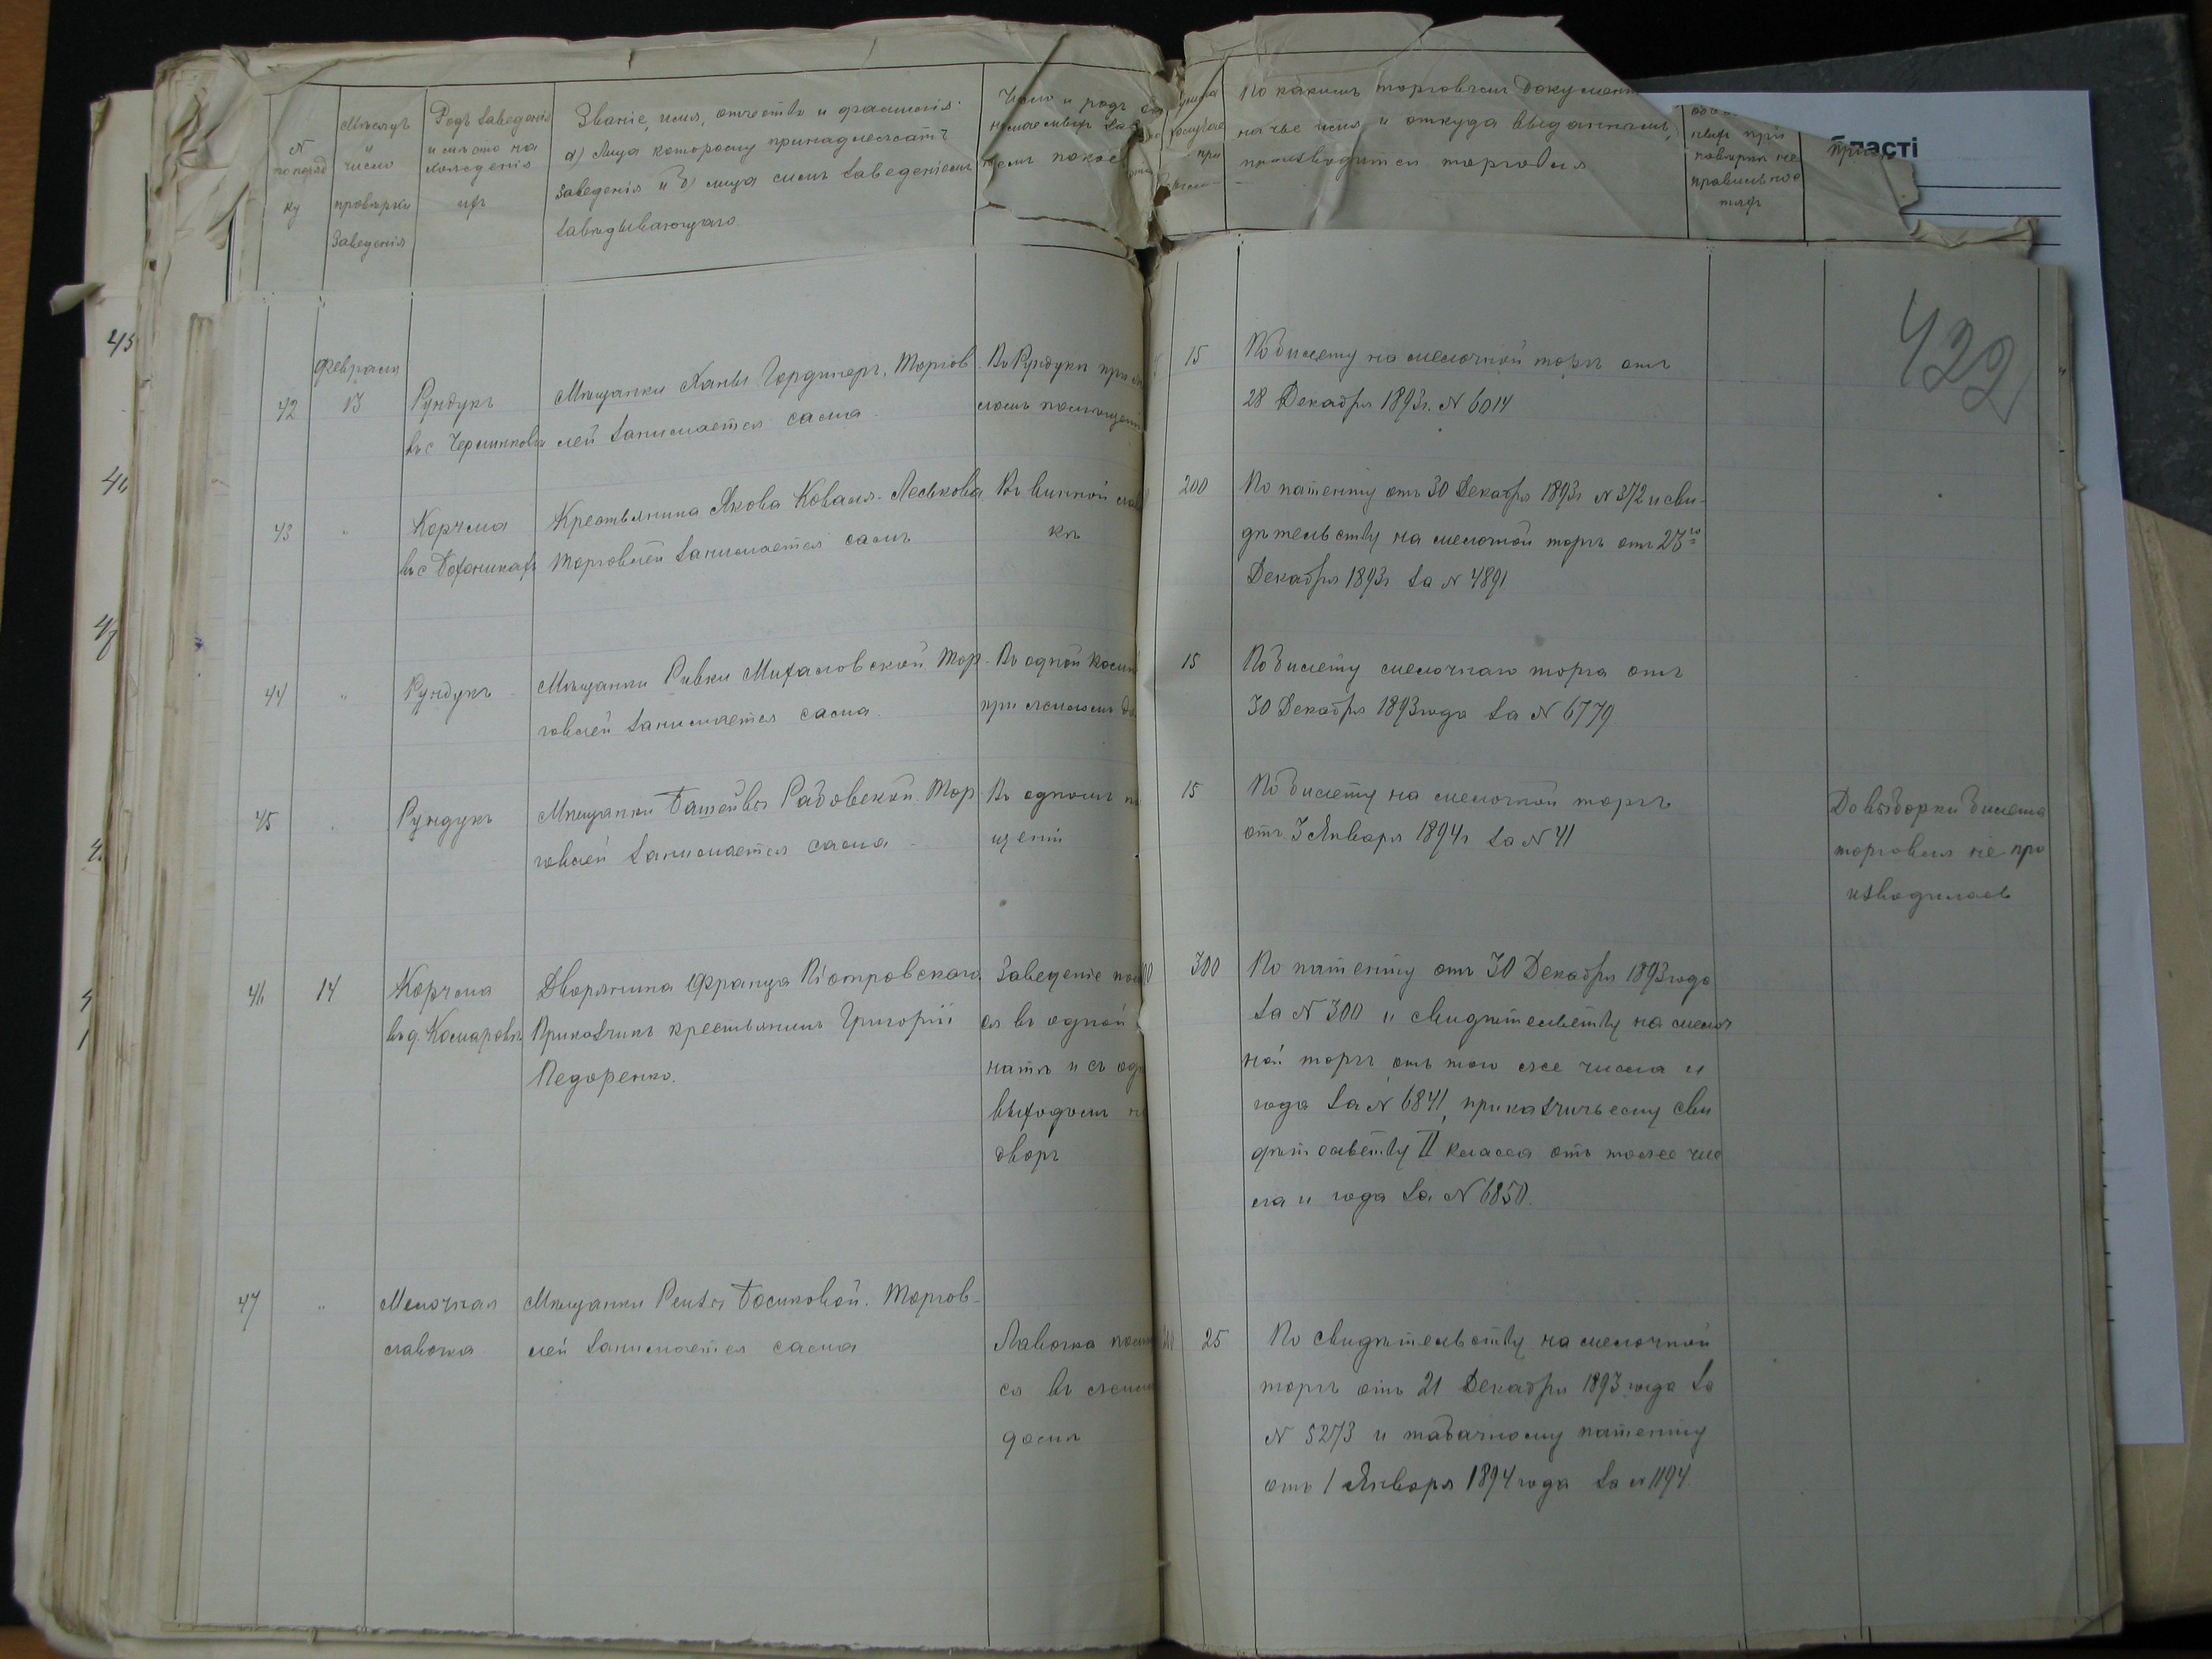 №
по поряд
ку
Мѣсяцъ
и
число
провѣрки
Заведенія
Родъ Заведенія
и мѣсто на
хожденія
ихъ
Званіе, имя, отчество и фамилія
а) лица которому принадлежатъ
Заведенія и б) лица симъ Заведеніемъ
Завѣдывающаго
Число и родъ
По какимъ торговымъ
на чье имя и откуда
производится торговля
при
повѣркѣ не
правильно
пасті
42
Февраля
13
Рундукъ
въ с
Мѣщанки Ханы Торгов
лей Занимается сама
Въ Рундукѣ при
15
По билету на мелочной торгъ отъ
28 Декабря 1893г. № 6014
422
43
"
Корчма
въ с
Крестьянина Якова Коваля-Леськова
Торговлей Занимается самъ
Въ винной
кѣ
200
По патенту отъ 30 Декабря 1893г № 372 и сви-
дѣтельству на мелочной торгъ отъ 23го
Декабря 1893г За № 4891
44
"
Рундукъ
Мѣщанки Ривки Михаловской. Тор-
говлей Занимается сама.
Въ одной
при жиломъ
15
По билету мелочнаго торга отъ
30 Декабря 1893 года За № 6779
45
Рундукъ
Мѣщанки Башейвы Радовской. Тор
говлей Занимается сама
Въ одномъ
щеніи
15
По билету на мелочной торгъ
отъ 3 Января 1894г За № 41
До выборки билета
торговля не про
изводилась
46
14
Корчма
въ д. Комаровкѣ
Дворянина Франца Піотровскаго
Прикащикъ крестьянинъ Григорій
Педоренко.
Заведеніе
ся въ одной
натѣ и съ
выходомъ
дворъ
300
По патенту отъ 30 Декабря 1893 года
За № 300 и свидѣтельству на мелоч
ной торгъ отъ того же числа и
года За № 6841, приказчичьему сви
дѣтельству II класса отъ тоже чис
ла и года За № 6850.
47
"
Мелочная
лавочка
Мѣщанки Рейзы Торгов-
лей Занимается сама
Лавочка
ся въ
домѣ
25
По свидѣтельству на мелочной
торгъ отъ 21 Декабря 1893 года За
№ 5273 и табачному патенту
отъ 1 Января 1894 года За № 1194.